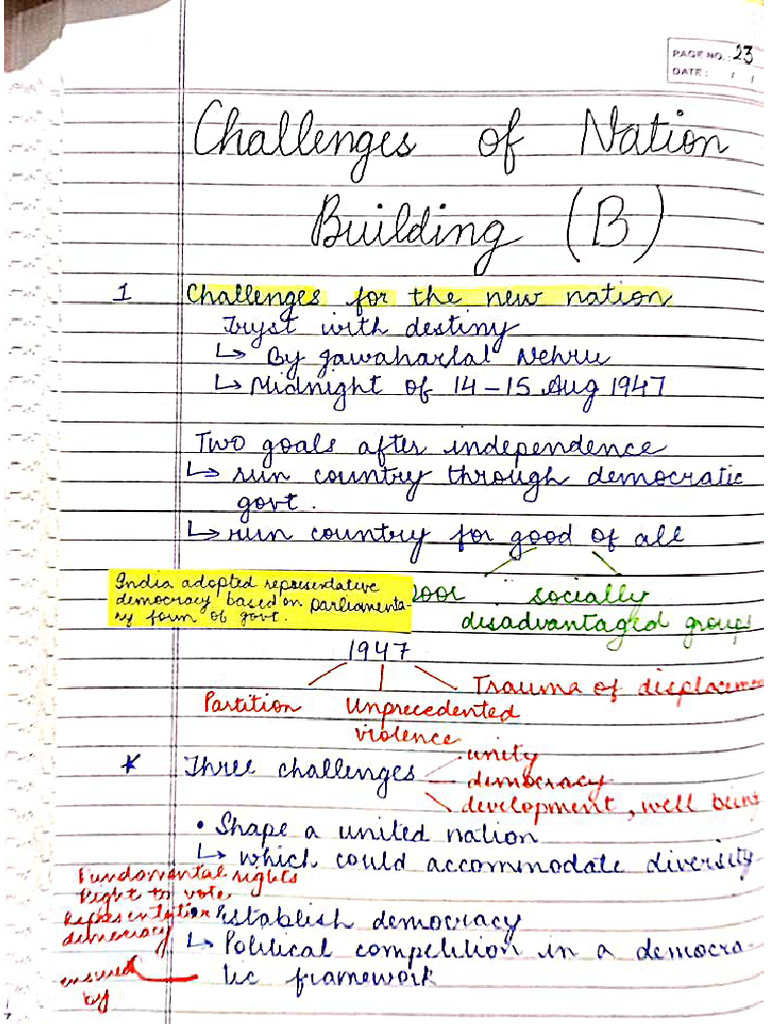 PAGE NO.: 23
DATE: / /
Challenges of Nation
Building (B)
1 Challenges for the new nation
Tryst with destiny
↳ By Jawaharlal Nehru
↳ Midnight of 14-15 Aug 1947
Two goals after independence
↳ run country through democratic
govt.
↳ run country for good of all
India adopted representative
democracy based on parliamenta-
ry form of govt.
poor socially
disadvantaged groups
1947
Partition Unprecedented Trauma of displaceme
violence
* Three challenges unity
democracy
development, well being
• Shape a united nation
↳ which could accommodate diversity
Fundamental rights
Right to vote
Representation
democracy
• Establish democracy
↳ Political competition in a democra-
tic framework
ensured
by